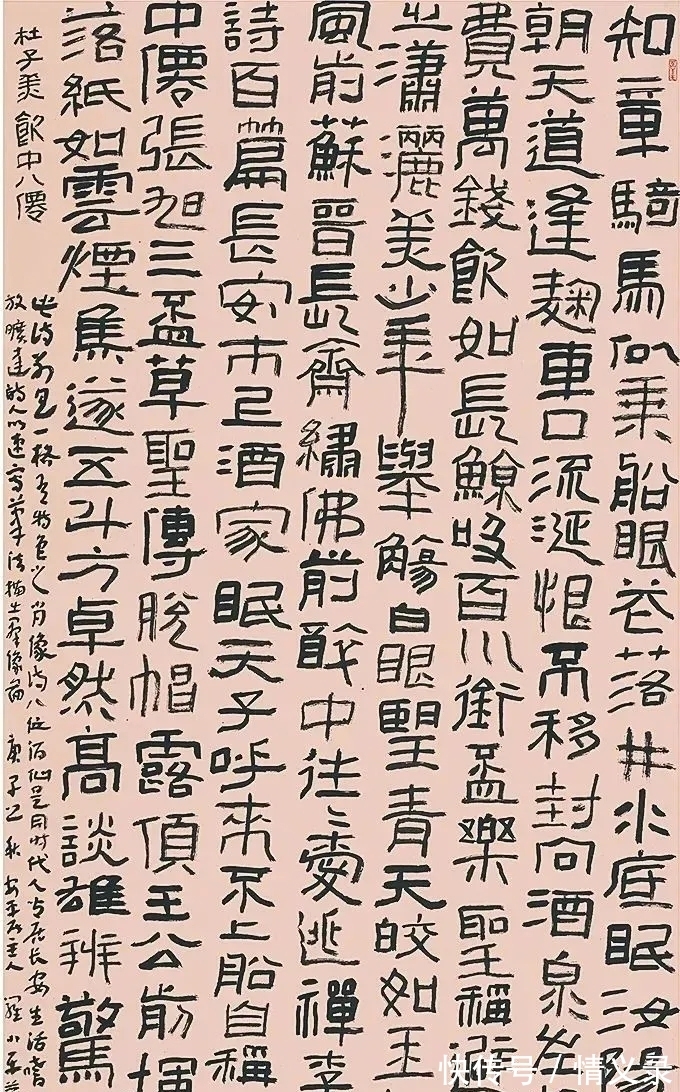 知章騎馬似乘船眼花落井水底眠汝陽
朝天道逢麴車口流涎恨不移封向酒泉左
費萬錢飲如長鯨吸百川銜盃樂聖稱
之瀟灑美少年舉觴白眼望青天皎如玉
風前蘇晉長齋繡佛前醉中往々愛逃禪李
詩百篇長安市上酒家眠天子呼來不上船自稱
中僊張旭三盃草聖傳脫帽露頂王公前揮
落紙如雲煙焦遂五斗方卓然高談雄辨驚
杜子美飲中八僊
此诗别具一格有特色之肖像诗八位酒仙是同时代人与居长安生活嗜
放曠達的人以速寫筆法描出群像 庚子之秋 主人 羅小平
快传号 / 情义录